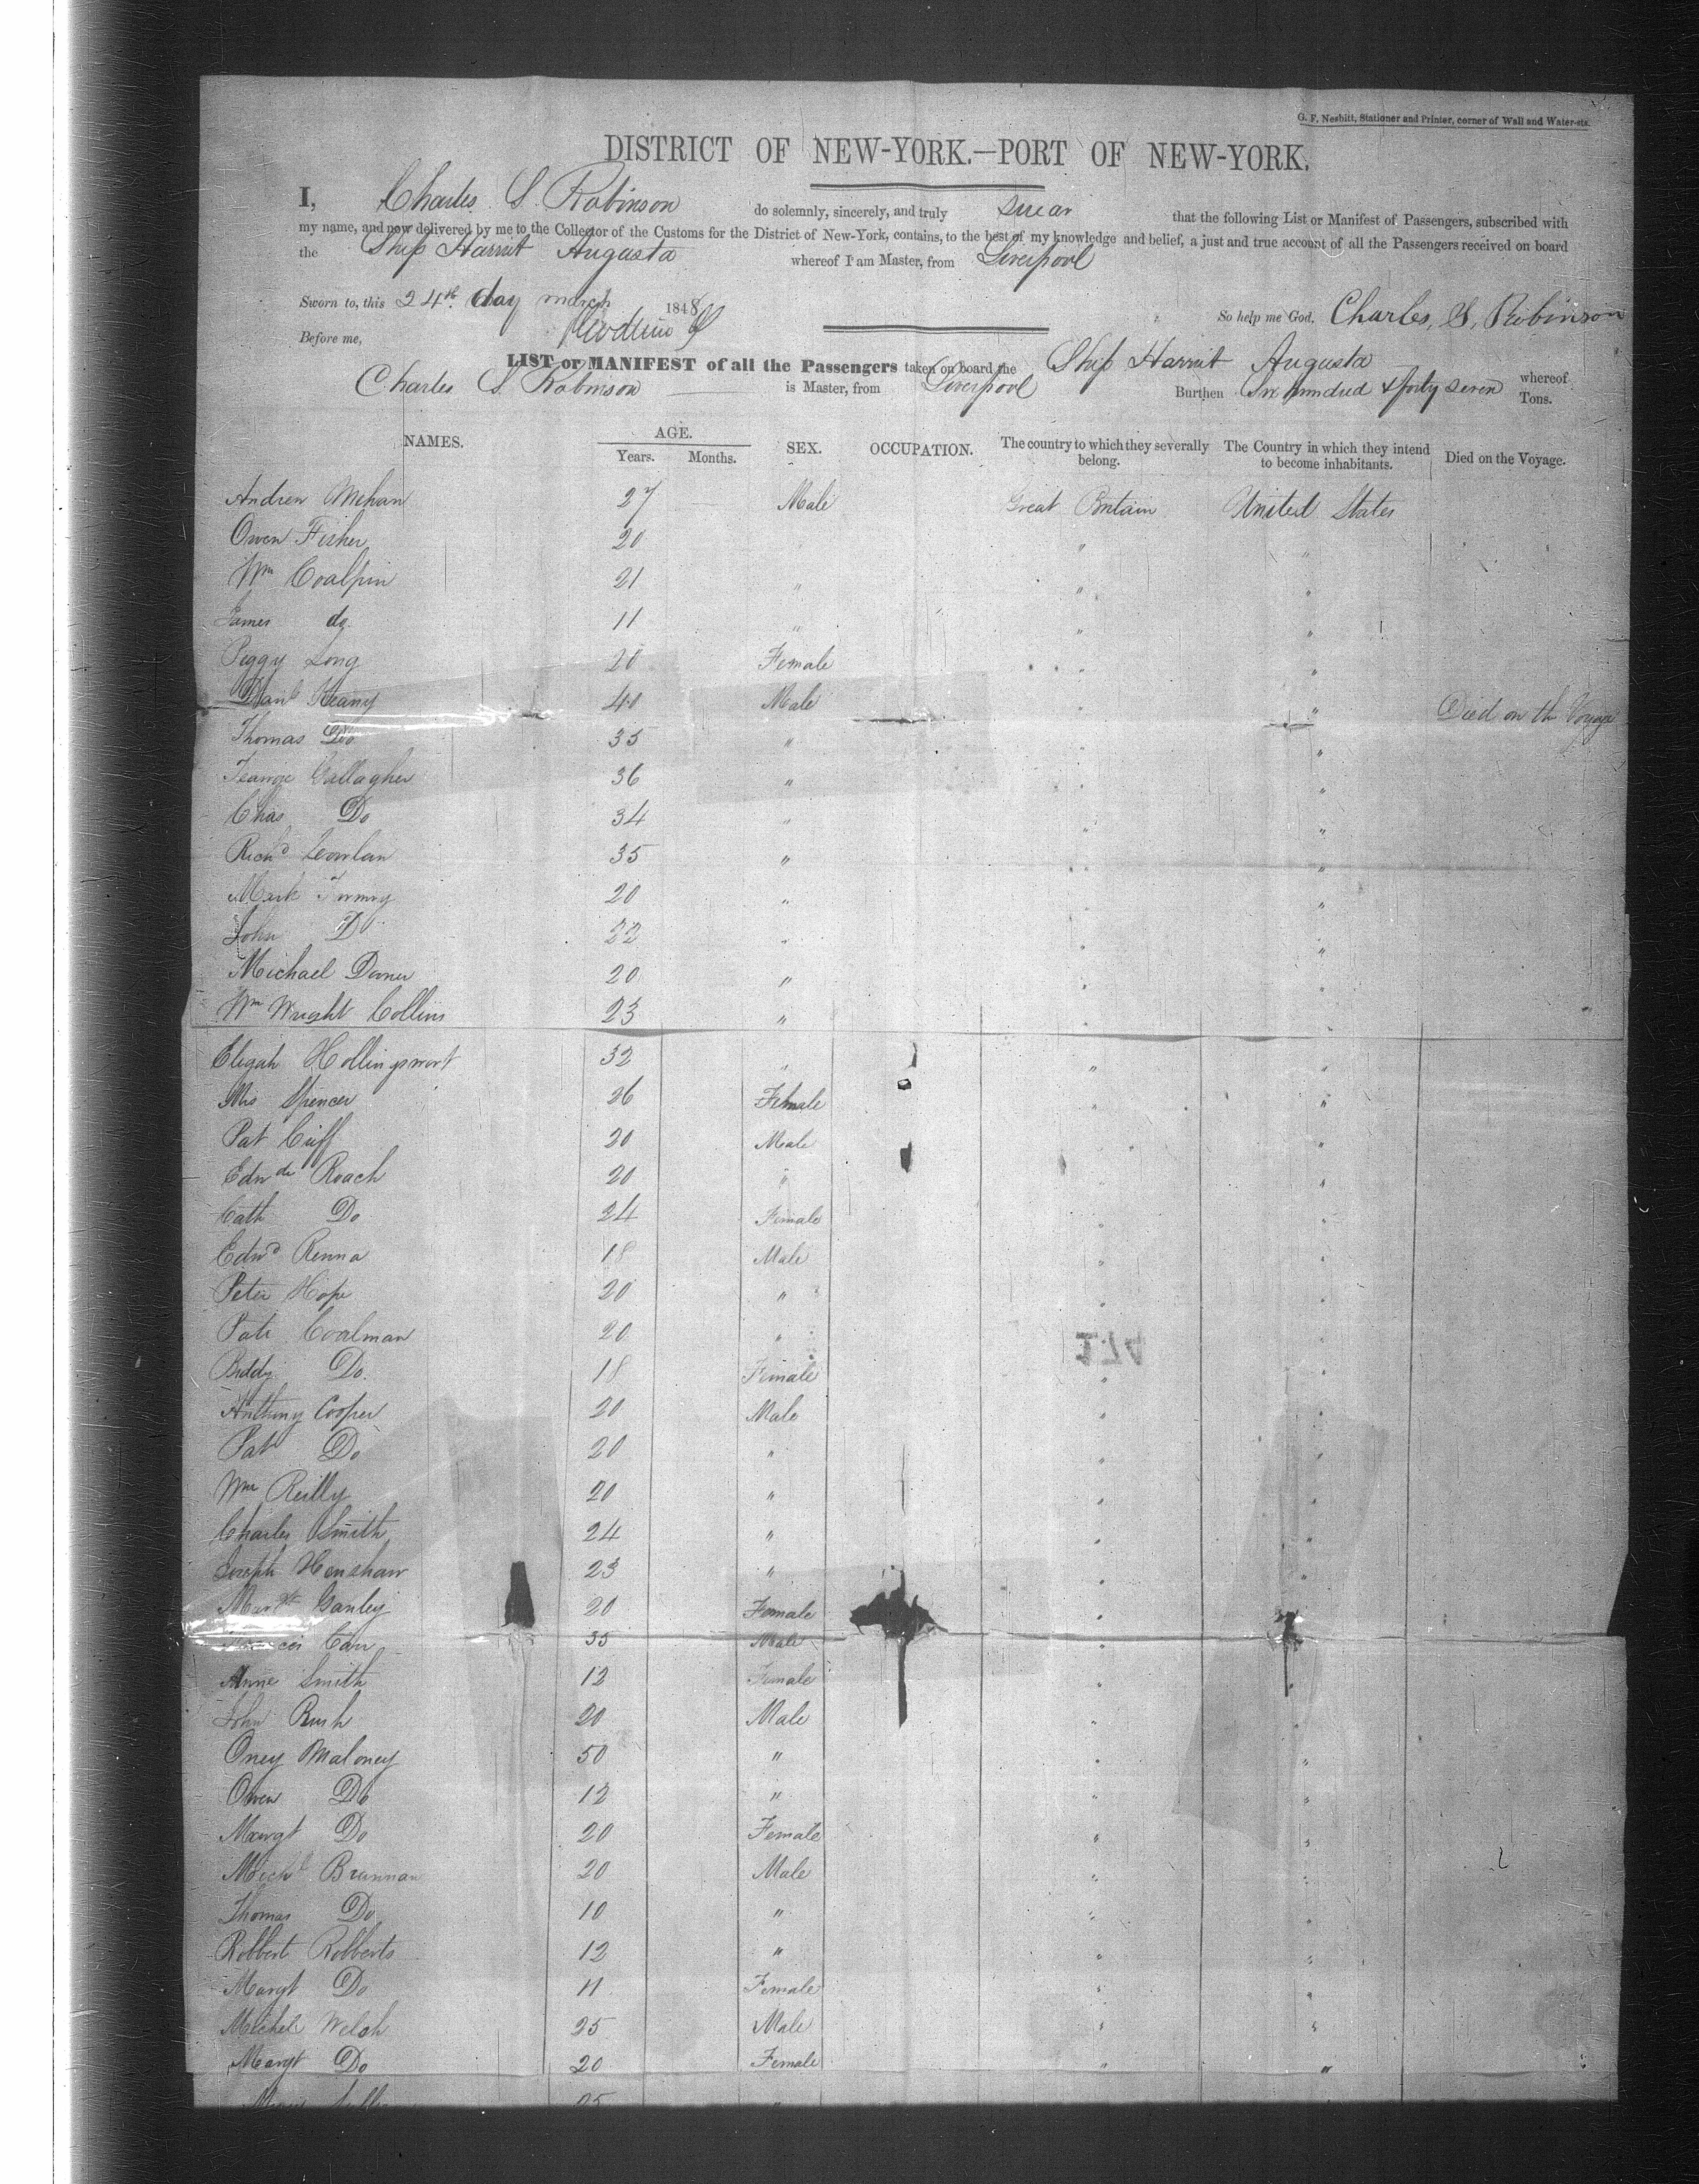 G. F. Nesbitt, Stationer and Printer, corner of Wall and Water-sts.
DISTRICT OF NEW-YORK.—PORT OF NEW-YORK.
I, Charles S. Robinson do solemnly, sincerely, and truly swear that the following List or Manifest of Passengers, subscribed with
my name, and now delivered by me to the Collector of the Customs for the District of New-York, contains, to the best of my knowledge and belief, a just and true account of all the Passengers received on board
the Ship Harriet Augusta whereof I am Master, from Liverpool
Sworn to, this 24th day march 1848 So help me God. Charles, S, Robinson
Before me,
LIST or MANIFEST of all the Passengers taken on board the Ship Harriet Augusta whereof
Charles S Robinson is Master, from Liverpool Burthen Six hundred & forty seven Tons.
NAMES. AGE. SEX. OCCUPATION. The country to which they severally belong. The Country in which they intend to become inhabitants. Died on the Voyage.
Years. Months.
Andrew Mehan 27 Male Great Britain United States
Owen Fisher 20 " "
Wm Coalpin 21 " " "
James do 11 " " "
Peggy Long 20 Female " "
Danl Keany 40 Male " " Died on th Voyage
Thomas Do 35 " " "
Gallagher 36 " " "
Chas Do 34 " " "
Richd 35 " " "
Mark 20 " " "
John Do 22 " " "
Michael 20 " " "
Wm Wright Collins 23 " " "
Elijah Hollingswort 32 " " "
Mis Spencer 26 Female " "
Pat Cuff 20 Male " "
Edwd Roach 20 " " "
Cath Do 24 Female " "
Edwd Renna 18 Male " "
Peter Hope 20 " " "
Coalman 20 " " "
274
Biddy Do. 18 Female " "
Anthony Cooper 20 Male " "
Pat Do 20 " " "
Wm Reilly 20 " " "
Charles Smith 24 " " "
Joseph Henshaw 23 " " "
Ganley 20 Female " "
Carr 35 Male "
Anne Smith 12 Female " "
John Rush 20 Male " "
Oney Maloney 50 " " "
Owen Do 12 " " "
Margt Do 20 Female " "
Michl Brannan 20 Male " "
Thomas Do 10 " " "
Robbert Robberts 12 " " "
Margt Do 11 Female " "
Michel Welch 25 Male " "
Margt Do 20 Female " "
25 "